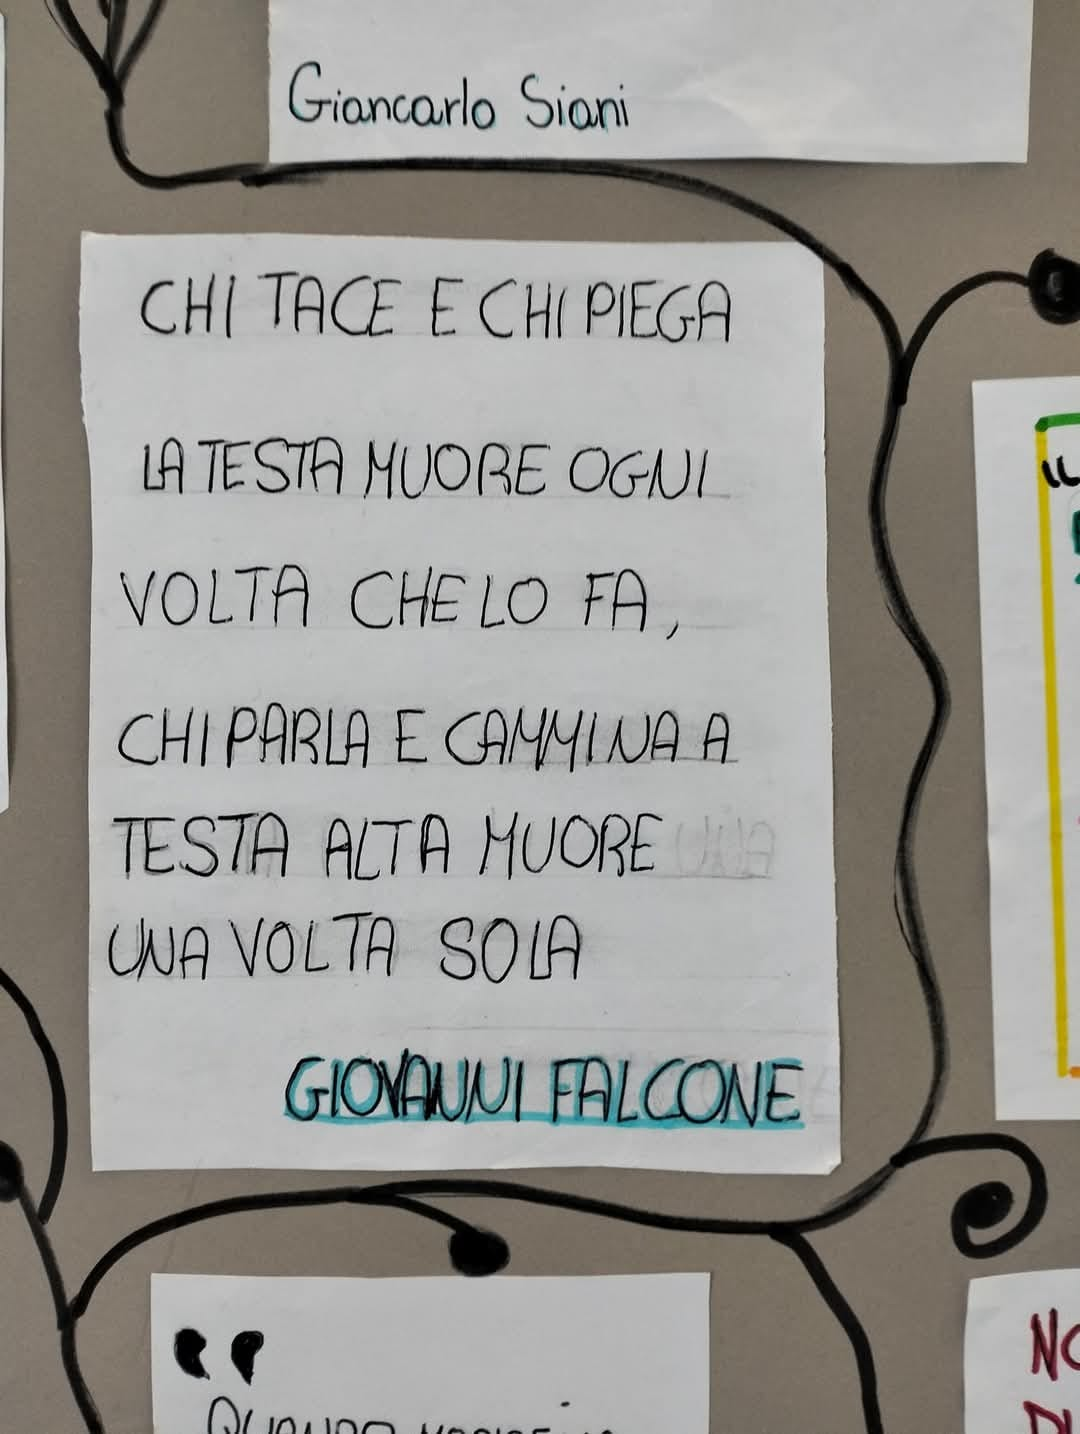 Giancarlo Siani
CHI TACE E CHI PIEGA
LA TESTA MUORE OGNI
VOLTA CHE LO FA,
CHI PARLA E CAMMINA A
TESTA ALTA MUORE UNA
UNA VOLTA SOLA
GIOVANNI FALCONE
IL
“
QUANDO
NO